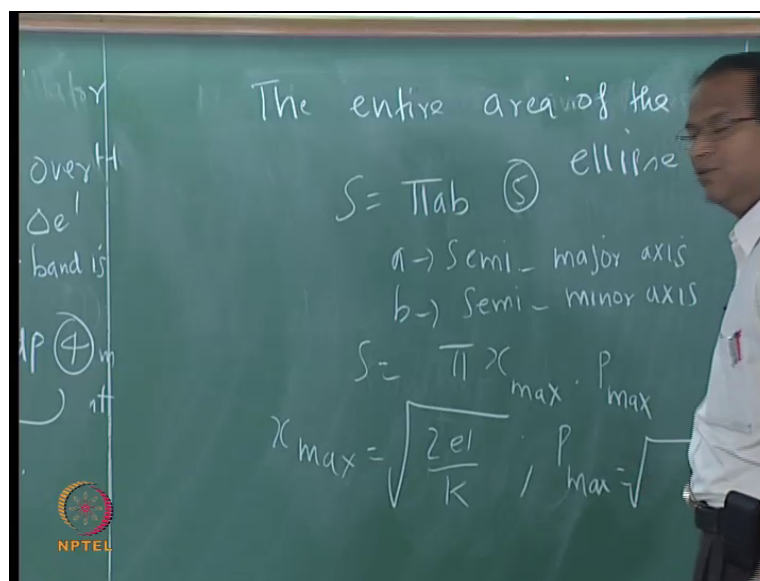 illator
over H
Δe'
band is
dp ④
The entire area of the
ellipse
S = πab ⑤
a → Semi - major axis
b → Semi - minor axis
S = π x_max . P_max
x_max = √(2e'/K) ; P_max = √
NPTEL